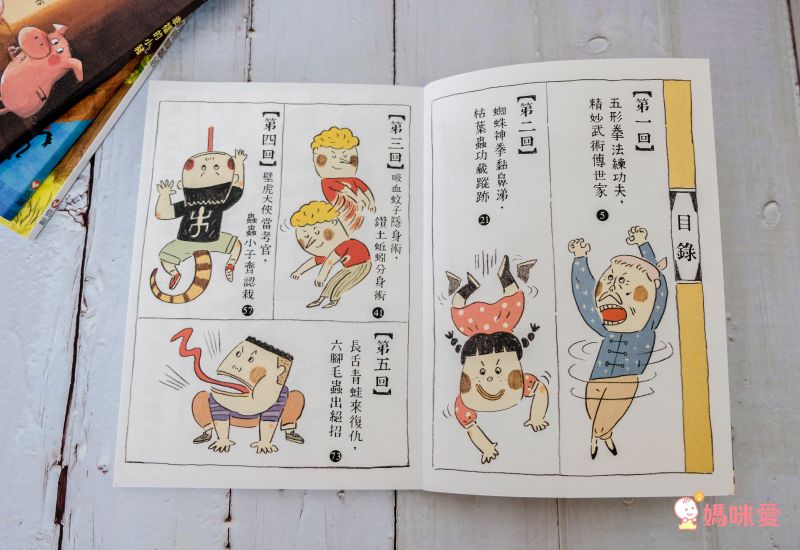 目錄
【第一回】
五形拳法練功夫，
精妙武術傳世家
5
【第二回】
蜘蛛神拳黏鼻涕，
枯葉蟲功藏蹤跡
21
【第三回】
吸血蚊子隱身術，
鑽土蚯蚓分身術
41
【第四回】
壁虎大俠當考官，
蟲蟲小子齊認栽
57
【第五回】
長舌青蛙來復仇，
六腳毛蟲出絕招
73
幸福的小豬
媽咪愛